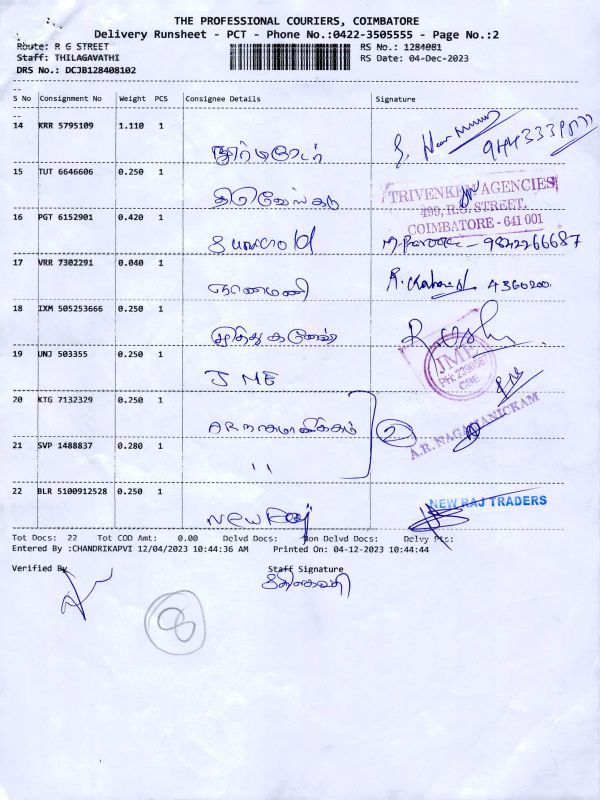 THE PROFESSIONAL COURIERS, COIMBATORE
Delivery Runsheet - PCT - Phone No.:0422-3505555 - Page No.:2
Route: R G STREET
Staff: THILAGAVATHI
DRS No.: DCJB128408102
RS No.: 1284081
RS Date: 04-Dec-2023
S No Consignment No Weight PCS Consignee Details Signature
14 KRR 5795109 1.110 1
15 TUT 6646606 0.250 1
TRIVENKEY AGENCIES
499, R.G. STREET,
COIMBATORE - 641 001
16 PGT 6152901 0.420 1
9842266687
17 VRR 7302291 0.040 1 ஞானமணி
4360200
18 IXM 505253666 0.250 1
19 UNJ 503355 0.250 1 JME
JME
CBE
20 KTG 7132329 0.250 1 AR நாகமாணிக்கம் 2
A.R. NAGAMANICKAM
21 SVP 1488837 0.280 1 "
22 BLR 5100912528 0.250 1 New Raj
NEW RAJ TRADERS
Tot Docs: 22 Tot COD Amt: 0.00 Delvd Docs: Non Delvd Docs: Delvy Ptc:
Entered By :CHANDRIKAPVI 12/04/2023 10:44:36 AM Printed On: 04-12-2023 10:44:44
Verified By Staff Signature
8